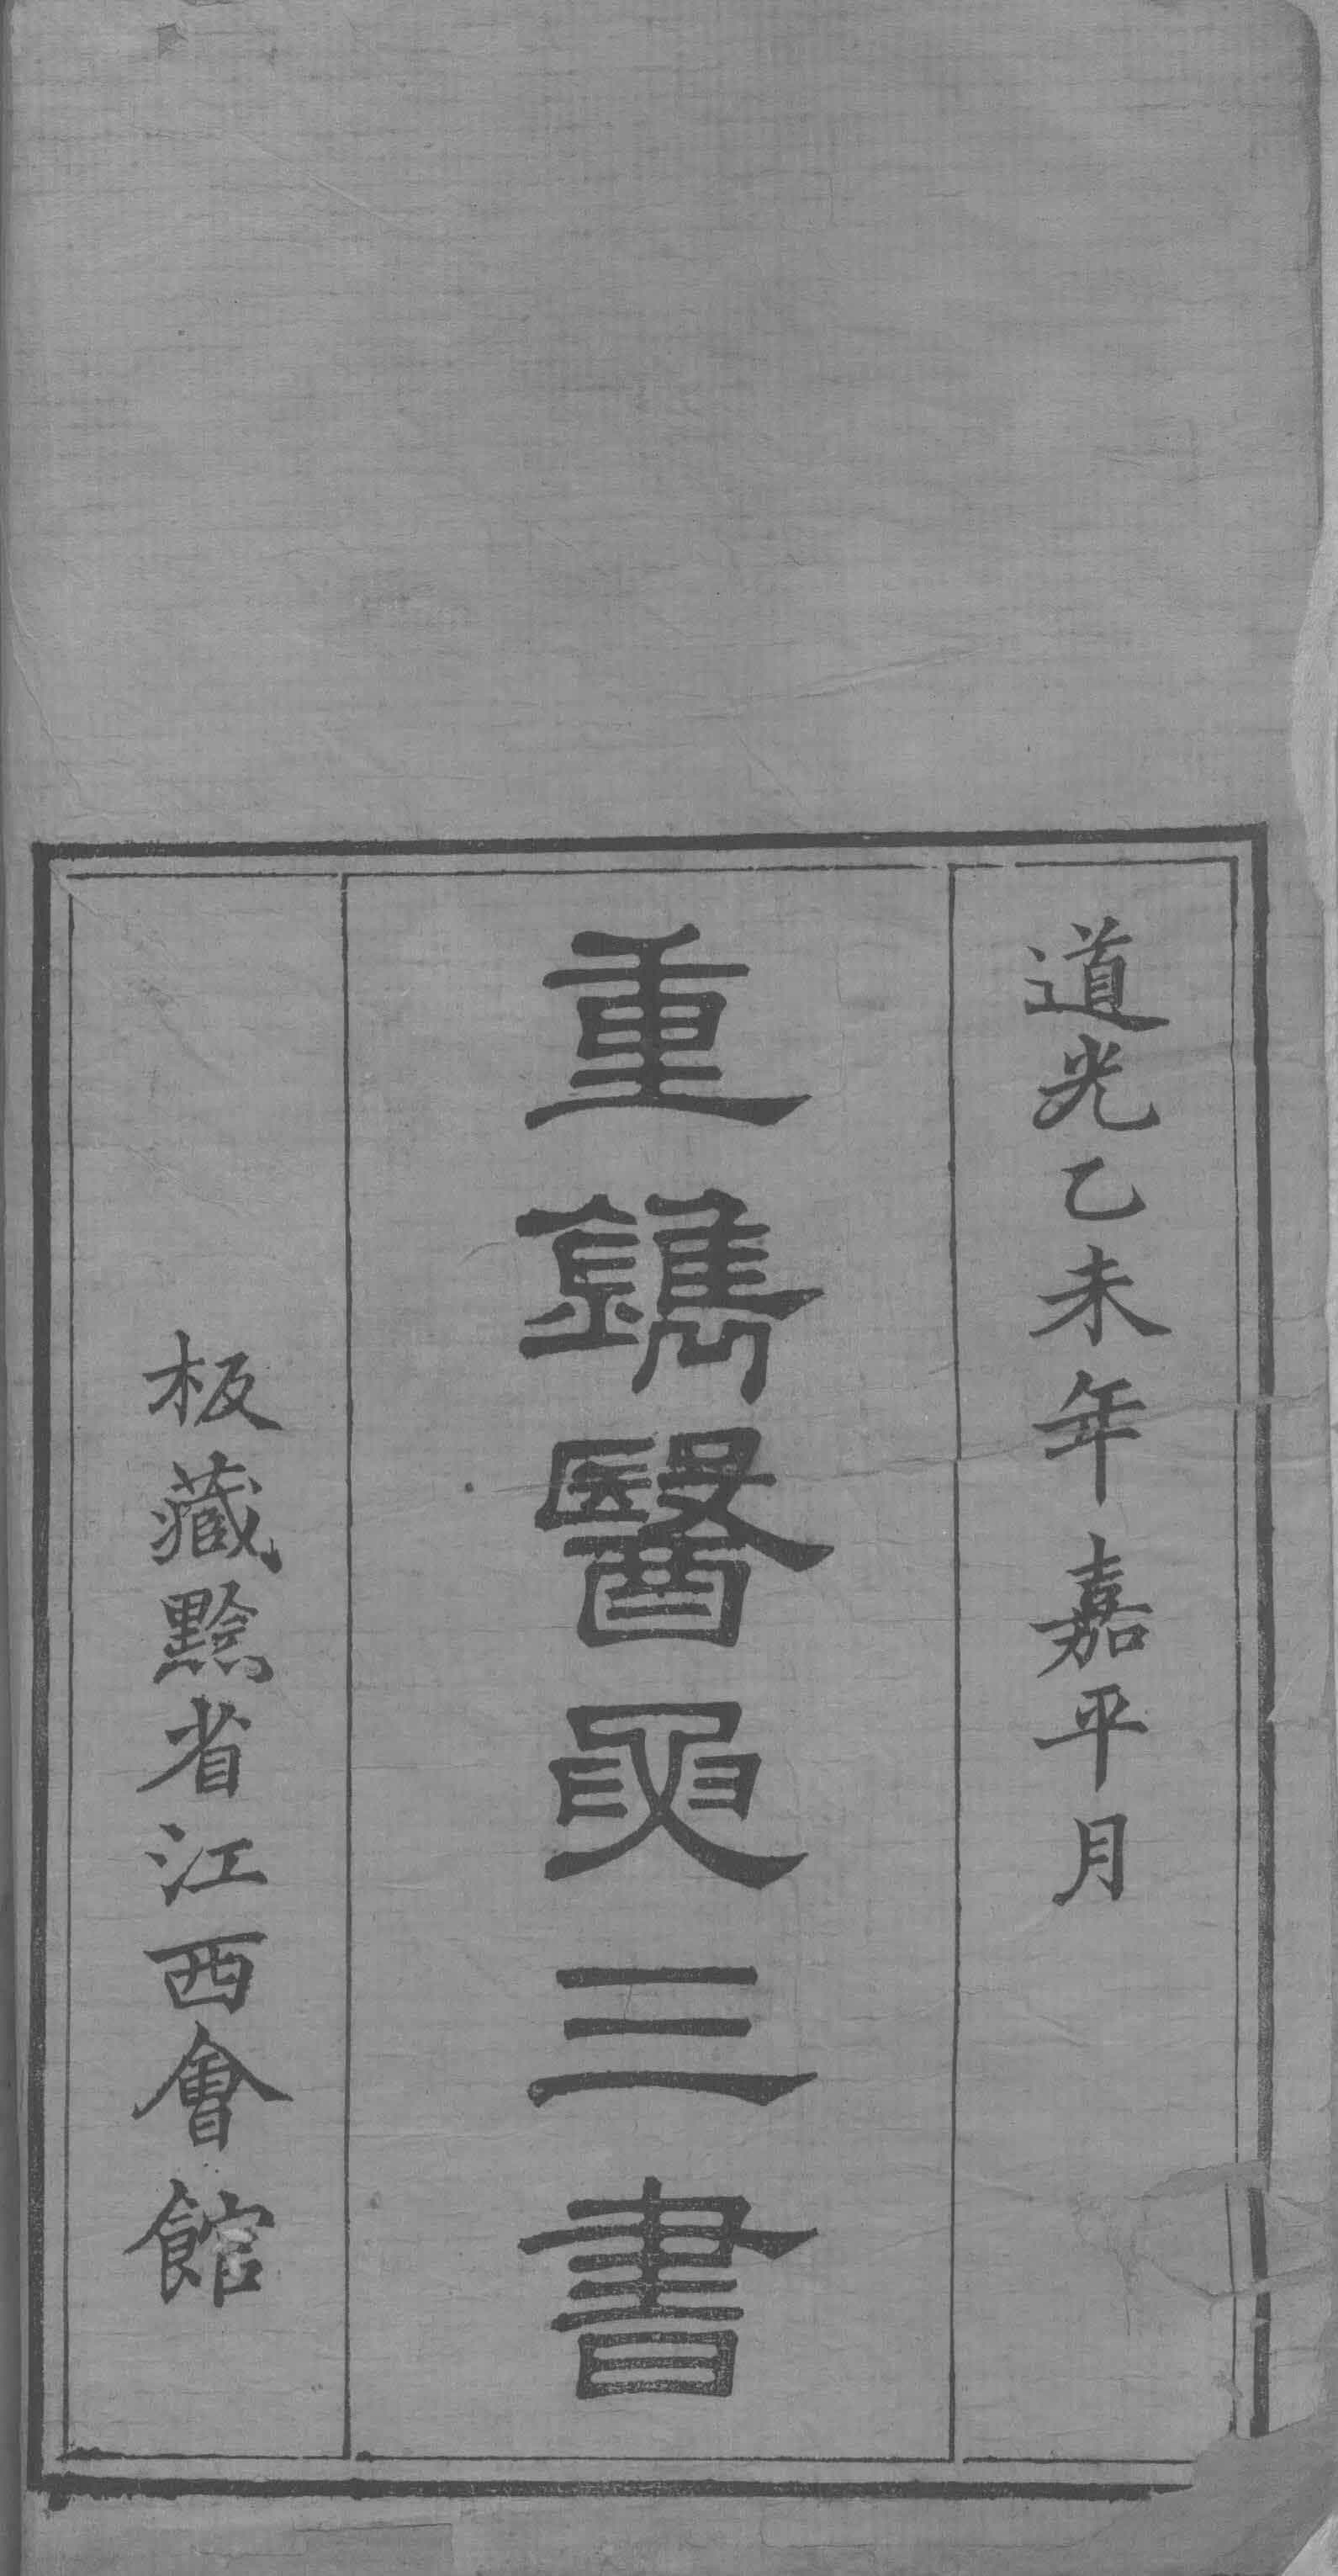 道光乙未年嘉平月
重鐫醫叟三書
板藏黔省江西會館